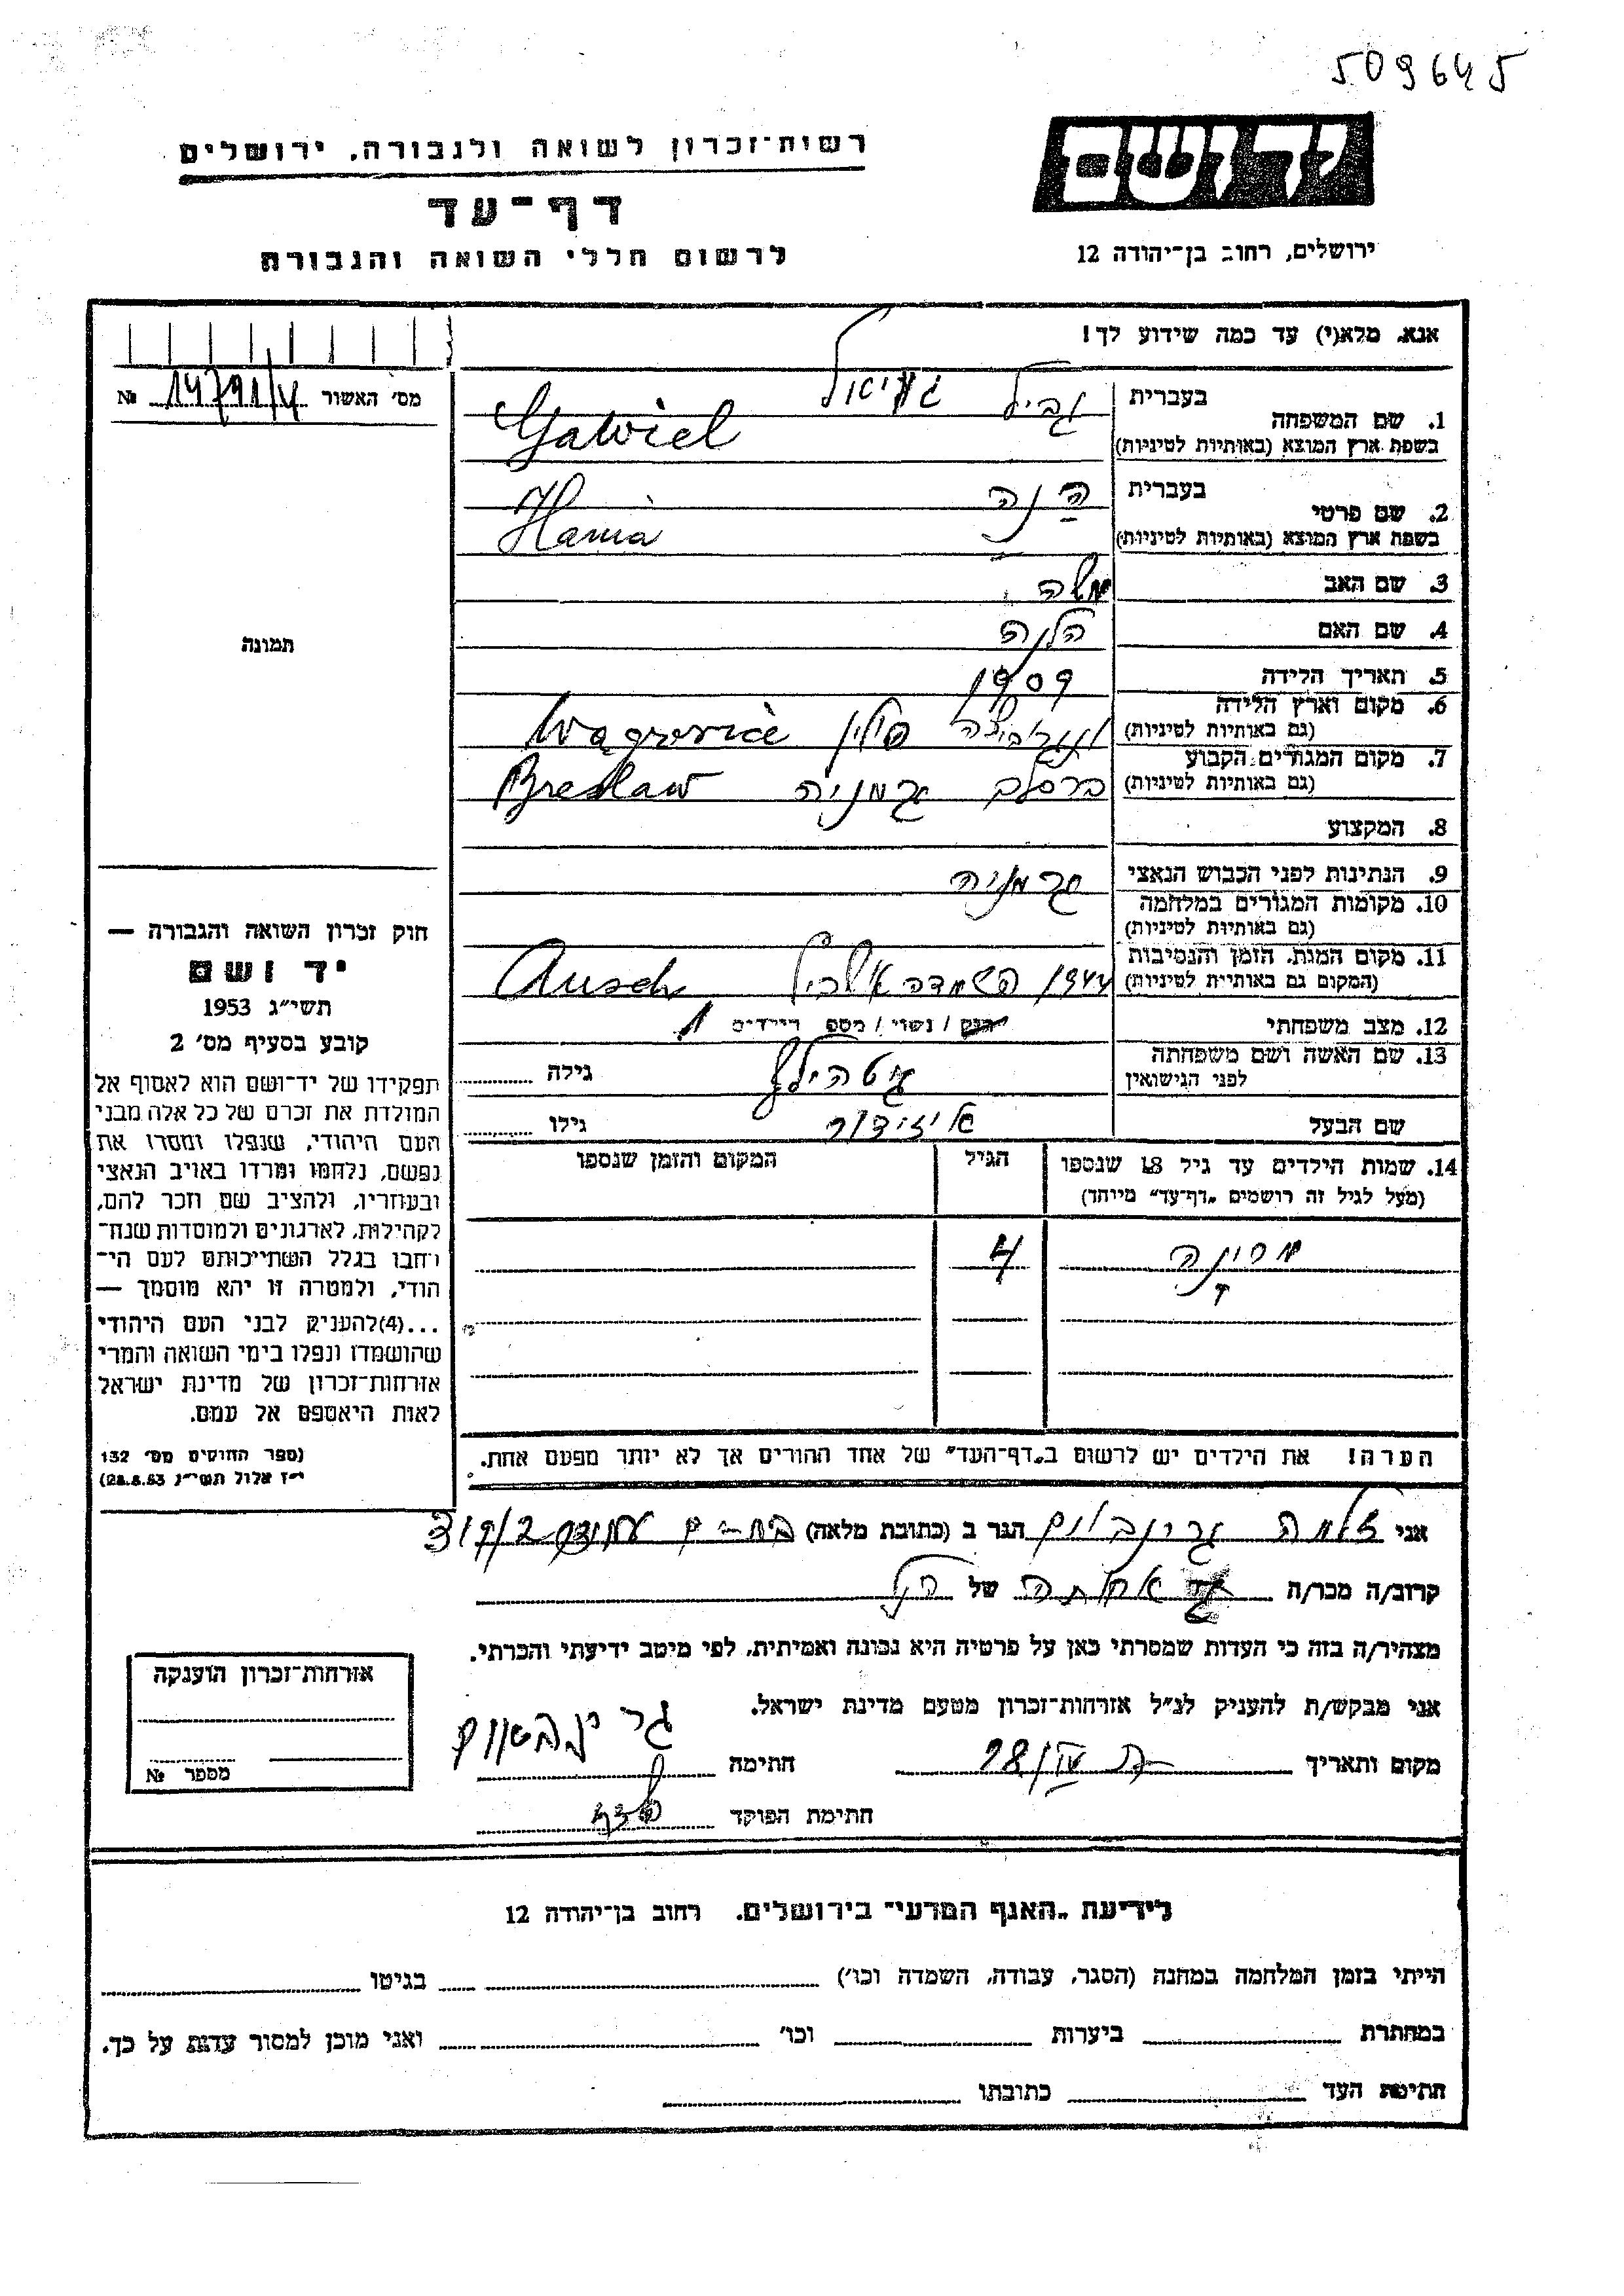 509645
יד ושם
ירושלים, רחוב בן־יהודה 12
רשות־זכרון לשואה ולגבורה, ירושלים
דף־עד
לרשום חללי השואה והגבורה
אנא, מלא(י) עד כמה שידוע לך!
מס' האשור 14791/4 №
תמונה
חוק זכרון השואה והגבורה —
יד ושם
תשי״ג 1953
קובע בסעיף מס' 2
תפקידו של יד־ושם הוא לאסוף אל
המולדת את זכרם של כל אלה מבני
העם היהודי, שנפלו ומסרו את
נפשם, נלחמו ומרדו באויב הנאצי
ובעוזריו, ולהציב שם וזכר להם,
לקהילות, לארגונים ולמוסדות שנח־
רבו בגלל השתייכותם לעם הי־
הודי, ולמטרה זו יהא מוסמך —
...(4)להעניק לבני העם היהודי
שהושמדו ונפלו בימי השואה והמרי
אזרחות־זכרון של מדינת ישראל
לאות היאספם אל עמם.
(ספר החוקים מס' 132
י״ז אלול תשי״ג 28.8.53)
בעברית
1. שם המשפחה
בשפת ארץ המוצא (באותיות לטיניות) Gawiel
בעברית הנה
2. שם פרטי
בשפת ארץ המוצא (באותיות לטיניות) Hania
3. שם האב משה
4. שם האם הלנה
5. תאריך הלידה 1909
6. מקום וארץ הלידה פולין
(גם באותיות לטיניות)
7. מקום המגורים הקבוע ברסלב גרמניה Breslaw
(גם באותיות לטיניות)
8. המקצוע
9. הנתינות לפני הכבוש הנאצי גרמניה
10. מקומות המגורים במלחמה
(גם באותיות לטיניות)
11. מקום המות, הזמן והנסיבות 1944 השמדה Ausch
(המקום גם באותיות לטיניות)
12. מצב משפחתי רווק / נשוי / מספ הילדים 1
13. שם האשה ושם משפחתה גילה
לפני הנישואין
שם הבעל איזידור גילו
14. שמות הילדים עד גיל 18 שנספו הגיל המקום והזמן שנספו
(מעל לגיל זה רושמים „דף־עד״ מיוחד)
4
הערה! את הילדים יש לרשום ב„דף־העד״ של אחד ההורים אך לא יותר מפעם אחת.
אני גרינבוים הגר ב (כתובת מלאה) בת-ים
קרוב/ה מכר/ה אחותה של הנ״ל
מצהיר/ה בזה כי העדות שמסרתי כאן על פרטיה היא נכונה ואמיתית, לפי מיטב ידיעתי והכרתי.
אני מבקש/ת להעניק לנ״ל אזרחות־זכרון מטעם מדינת ישראל.
מקום ותאריך חתימה גרינבאום
חתימת הפוקד
אזרחות־זכרון הוענקה
מספר №
לידיעת „האגף המדעי״ בירושלים, רחוב בן־יהודה 12
הייתי בזמן המלחמה במחנה (הסגר, עבודה, השמדה וכו') בגיטו
במחתרת ביערות וכו' ואני מוכן למסור עדות על כך.
חתימת העד כתובתו